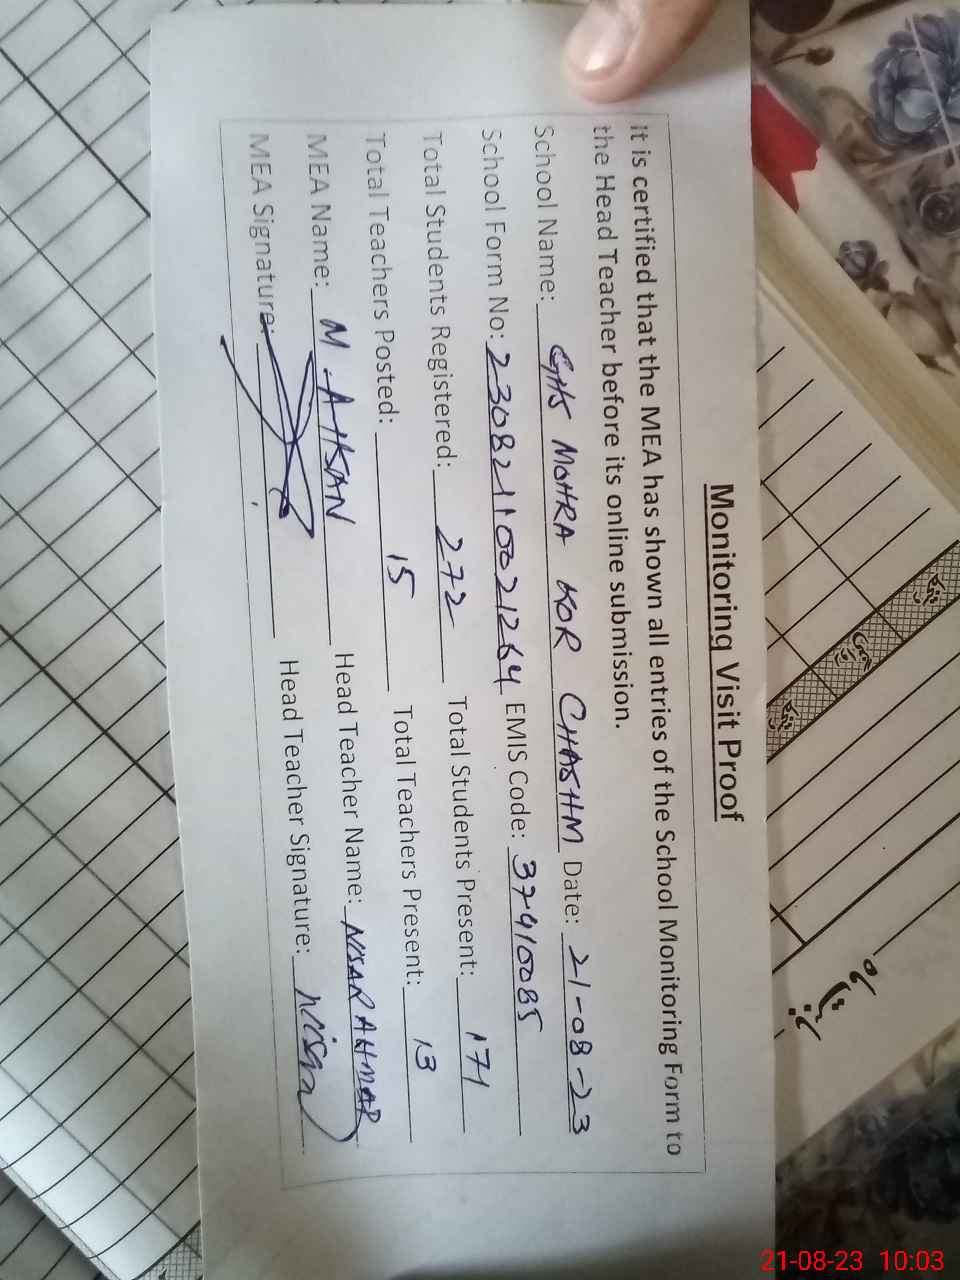 Monitoring Visit Proof
It is certified that the MEA has shown all entries of the School Monitoring Form to
the Head Teacher before its online submission.
School Name: GHS MOHRA KOR CHASHM Date: 21-08-23
School Form No: 23082110021264 EMIS Code: 37410085
Total Students Registered: 272 Total Students Present: 171
Total Teachers Posted: 15 Total Teachers Present: 13
MEA Name: M. AHSAN Head Teacher Name: NISAR AHMAD
MEA Signature: Head Teacher Signature: Nisar
21-08-23 10:03